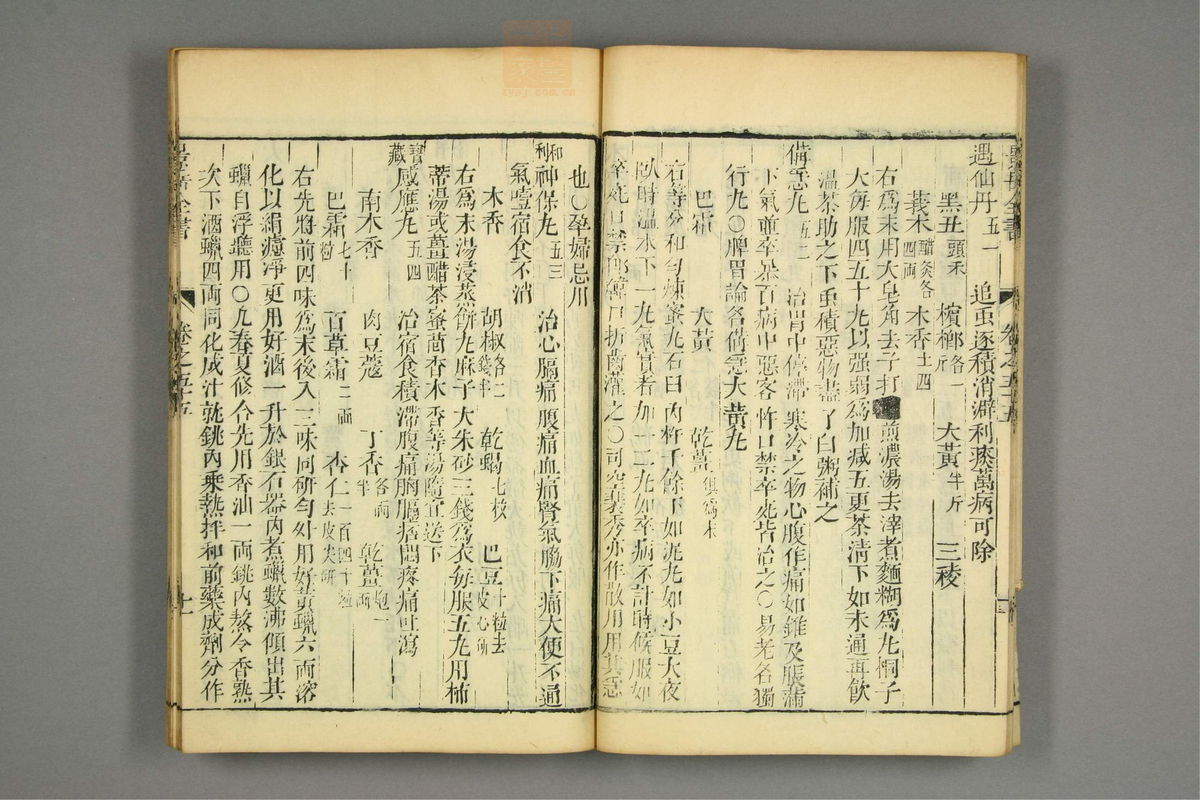 景岳全書 卷之五十五
遇仙丹 五一 追虫逐積消癖利痰萬病可除
黑丑 頭末 檳榔 各一斤 大黃 半斤 三稜
莪朮 醋炙各四兩 木香 二四
右爲末用大皂角去子打 煎濃湯去滓煮麵糊爲丸桐子
大每服四五十丸以強弱爲加減五更茶清下如未通再飲
溫茶助之下虫積惡物盡了白粥補之
備急丸 五二 治胃中停滯寒冷之物心腹作痛如錐及脹滿
下氣並卒暴百病中惡客忤口禁卒死皆治之○易老名獨
行丸○脾胃論名備急大黃丸
巴霜 大黃 乾薑 俱爲末
右等分和勻煉蜜丸石臼內杵千餘下如泥丸如小豆大夜
臥時溫水下一丸氣實者加一二丸如卒病不計時候服如
卒死口禁即 口折齒灌之○司空裴秀亦作散用用其急
也○孕婦忌用
和利神保丸 五三 治心膈痛腹痛血痛腎氣脇下痛大便不通
氣噎宿食不消
木香 胡椒 各二錢半 乾蝎 七枚 巴豆 十粒去皮心研
右爲末湯浸蒸餅丸麻子大朱砂三錢爲衣每服五丸用柿
蒂湯或薑醋茶蜜茴香木香等湯隨宜送下
寶藏感應丸 五四 治宿食積滯腹痛胸膈痞悶疼痛吐瀉
南木香 肉豆蔻 丁香 各一兩半 乾薑 炮一兩
巴霜 七十粒 百草霜 二兩 杏仁 一百四十粒去皮尖研
右先將前四味爲末後入三味同研勻外用好黃蠟六兩溶
化以絹濾淨更用好酒一升於銀石器內煮蠟數沸傾出其
蠟自浮聽用○凡春夏修合先用香油一兩銚內熬令香熟
次下酒蠟四兩同化成汁就銚內乘熱拌和前藥成劑分作
景岳全書 卷之五十五